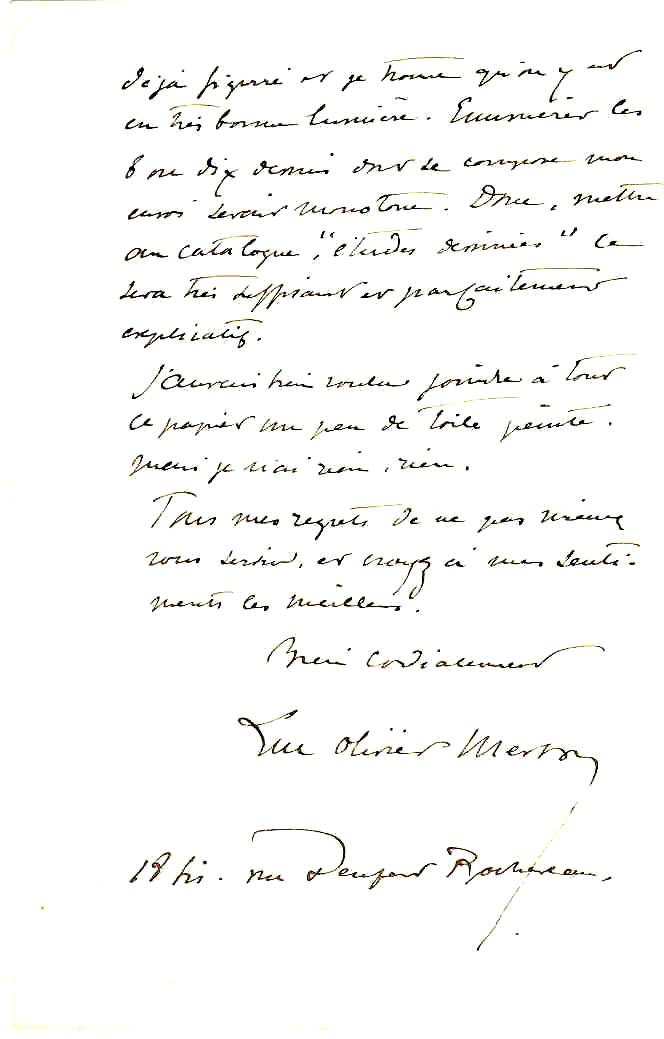 déjà figuré et je trouve qu'on y est
en très bonne lumière. Enumérer les
8 ou dix dessins dont se compose mon
envoi serait monotone. Donc, mettre
au catalogue, "études dessinées" ce
sera très suffisant et parfaitement
explicatif.
J'aurais bien voulu joindre à tout
ce papier un peu de toile peinte.
mais je n'ai rien, rien.
Tous mes regrets de ne pas mieux
vous servir, et croyez à mes senti-
ments les meilleurs.
Bien cordialement
Luc Olivier Merson
18 bis. rue Denfert Rochereau.